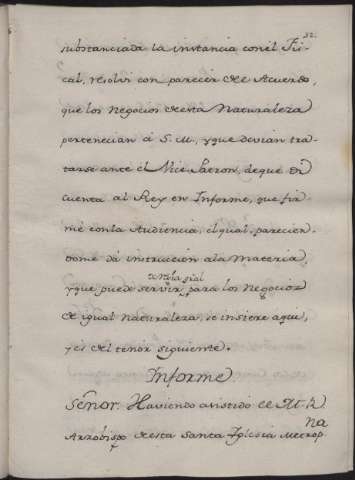 32.
substanciada la instancia con el Fis-
cal, resolvi con parecer de Acuerdo,
que los Negocios de esta Naturaleza
pertenecian á S. M., y que devian tra-
tarse ante el Vice Patron, de que di
cuenta al Rey en Informe, que fir-
mé con la Audiencia, el qual, parecien-
dome dá instruccion a la Materia,
y que puede servir para los Negocios
de igual naturaleza, se insiere aqui,
y es del tenor siguiente.
Informe
Señor. Haviendo avistido el M. R.
Arzobispo de esta Santa Iglesia Metrop.na